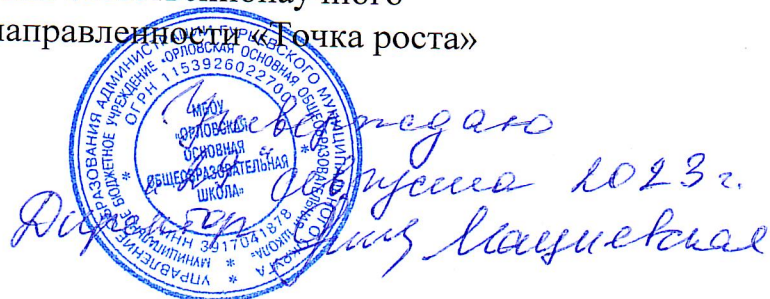 направленности «Точка роста»
УПРАВЛЕНИЕ ОБРАЗОВАНИЯ АДМИНИСТРАЦИИ ГУРЬЕВСКОГО МУНИЦИПАЛЬНОГО ОКРУГА
МУНИЦИПАЛЬНОЕ БЮДЖЕТНОЕ УЧРЕЖДЕНИЕ «ОРЛОВСКАЯ ОСНОВНАЯ ОБЩЕОБРАЗОВАТЕЛЬНАЯ ШКОЛА»
ОГРН 1153926022700
ИНН 3917041878
МБОУ
«ОРЛОВСКАЯ
ОСНОВНАЯ
ОБЩЕОБРАЗОВАТЕЛЬНАЯ
ШКОЛА»
Утверждаю
августа 2023 г.
Директор Мациевская